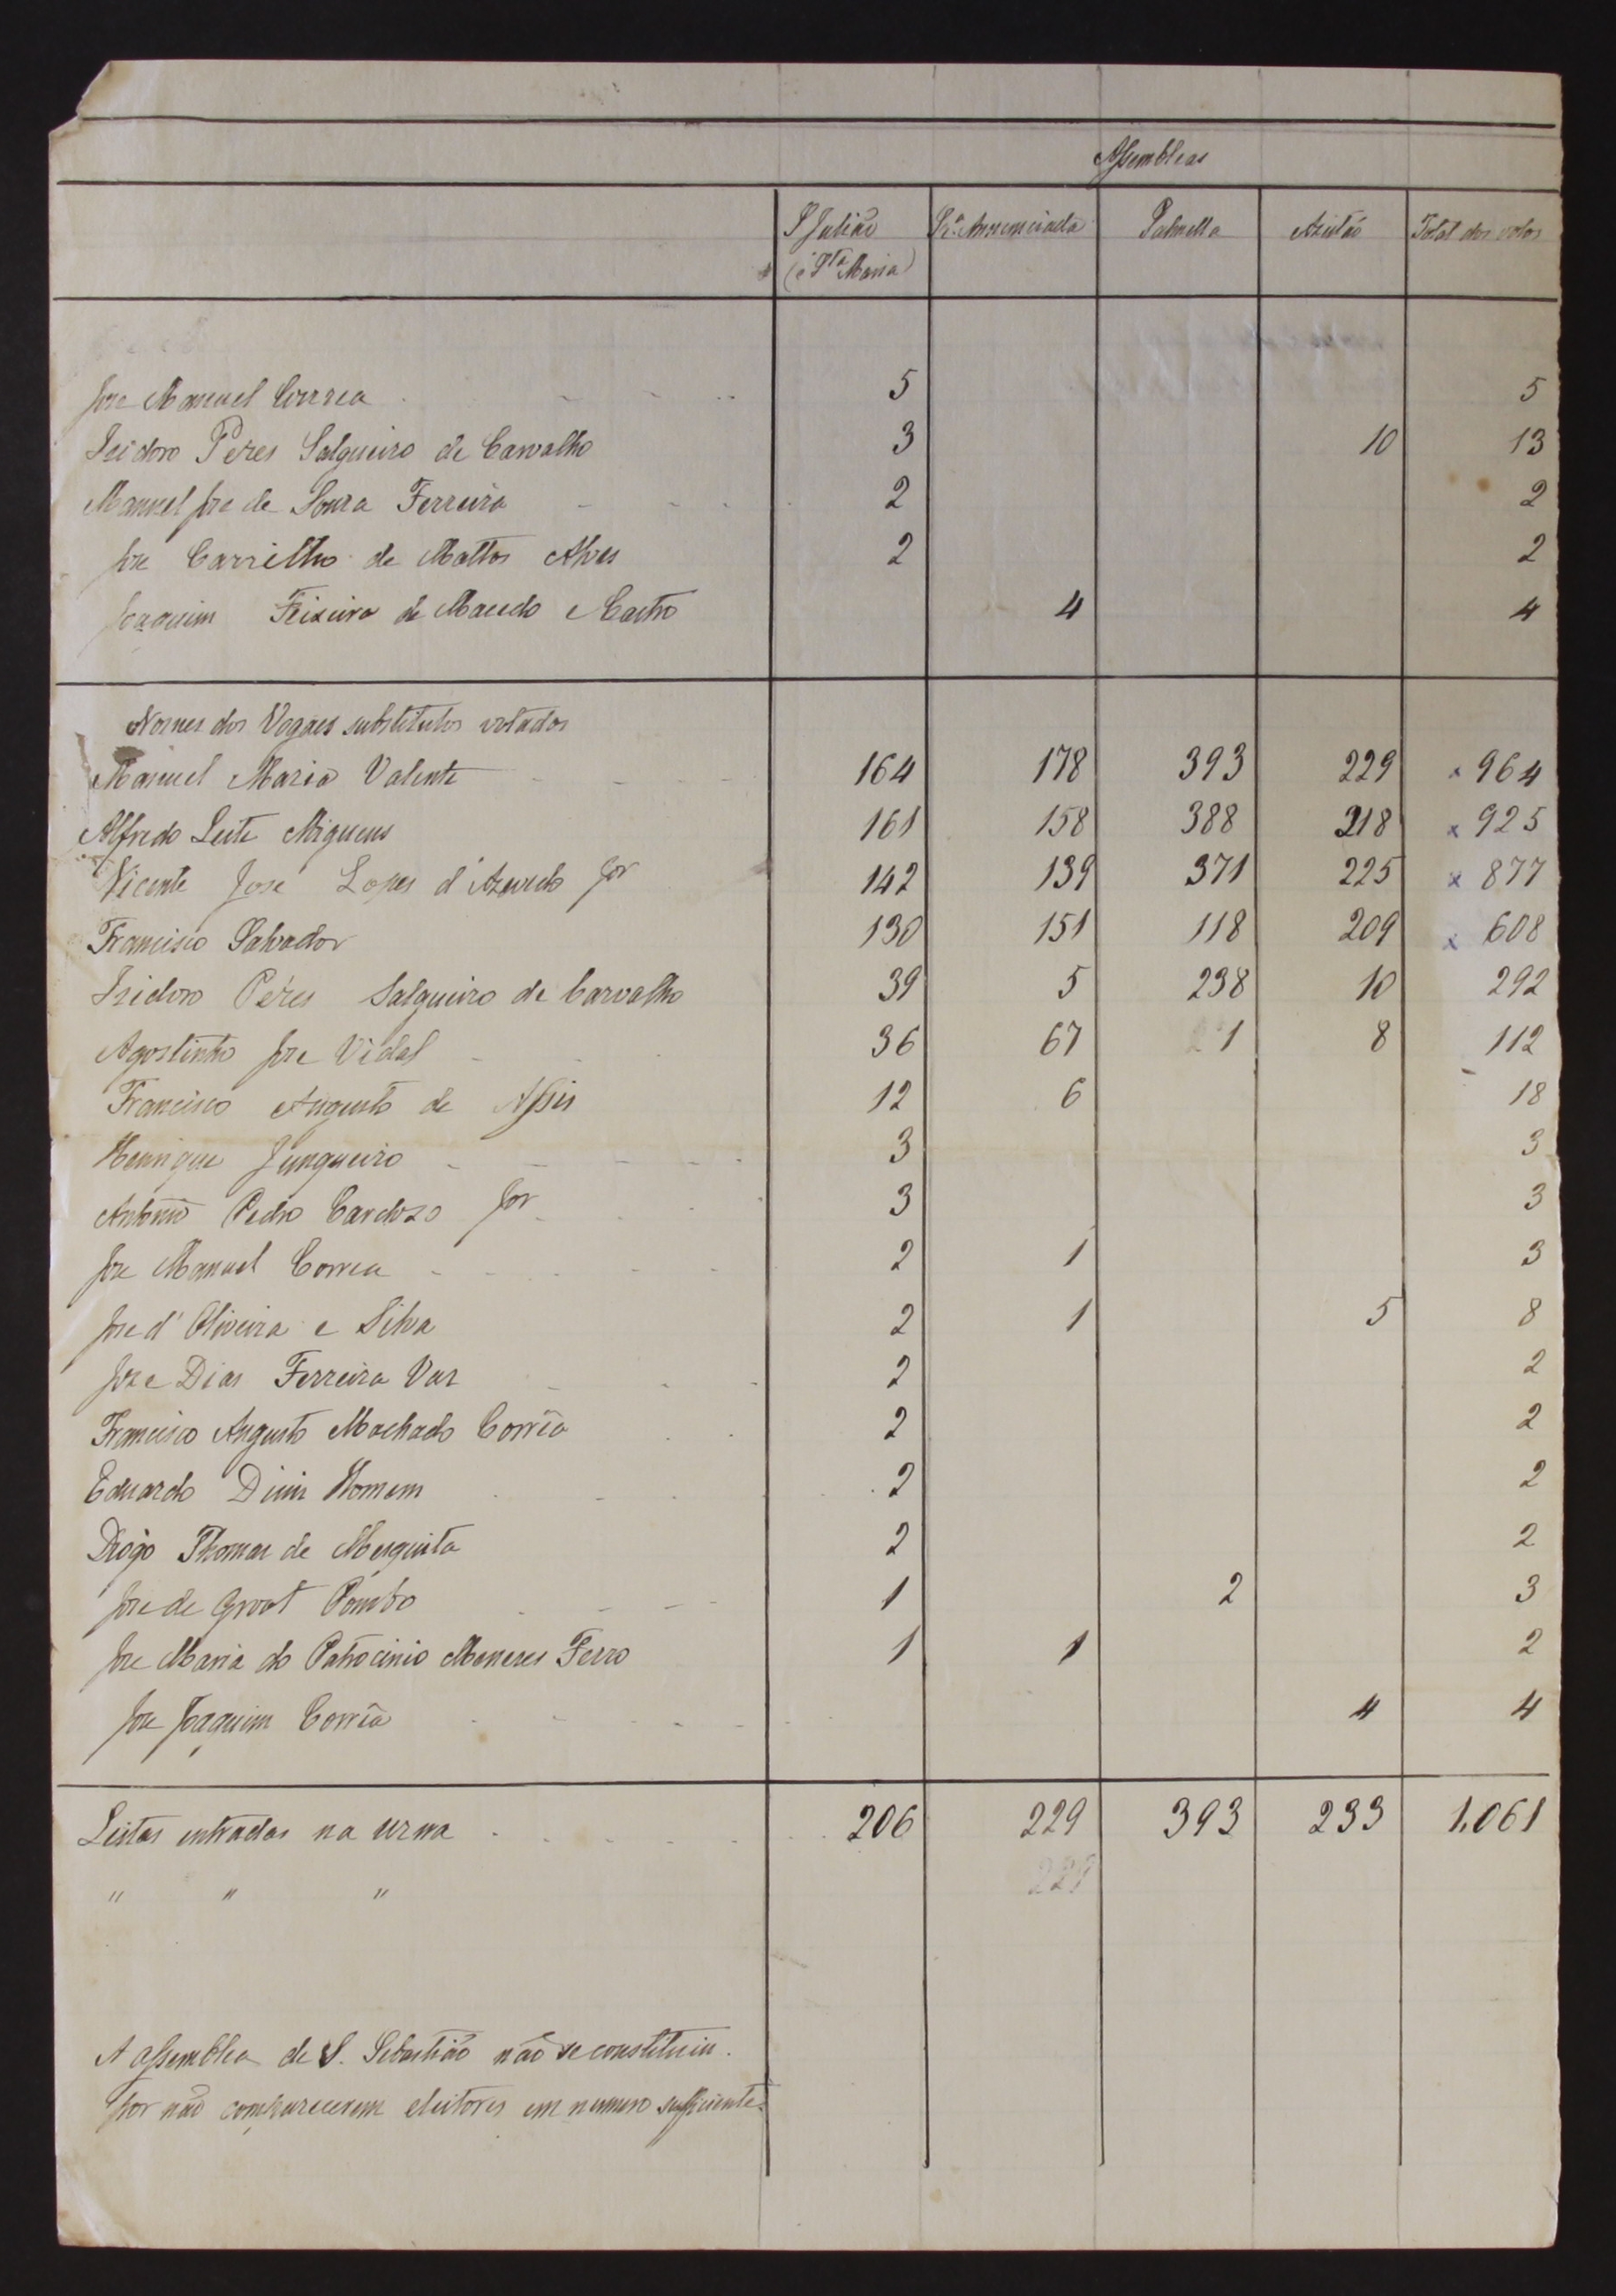 Assembleas
S Julião Sr.ª Annunciada Palmella Azeitão Total dos votos
(e Sta Maria)
Jose Manuel Correa 5 5
Isidoro Peres Salgueiro de Carvalho 3 10 13
Manuel Jose de Souza Ferreira 2 2
Jose Carrilho de Mattos Alves 2 2
Joaquim Teixeira de Macedo e Castro 4 4
Nomes dos Vogaes substitutos votados
Manuel Maria Valente 164 178 393 229 x 964
Alfredo Leite Migueus 161 158 388 218 x 925
Vicente Jose Lopes d'Azevedo Jor 142 139 371 225 x 877
Francisco Salvador 130 151 118 209 x 608
Isidoro Péres Salgueiro de Carvalho 39 5 238 10 292
Agostinho Jose Vidal 36 67 1 8 112
Francisco Augusto de Assis 12 6 18
Henrique Junqueiro 3 3
Antonio Pedro Cardozo Jor 3 3
Jose Manuel Correa 2 1 3
Jose d'Oliveira e Silva 2 1 5 8
Jose Dias Ferreira Vaz 2 2
Francisco Augusto Machado Corrêa 2 2
Eduardo Diniz Homem 2 2
Diogo Thomaz de Mesquita 2 2
Jose de Groot Pombo 1 2 3
Jose Maria do Patrocinio Menezes Ferro 1 1 2
Jose Joaquim Corrêa 4 4
Listas entradas na urna 206 229 393 233 1.061
" " " 229
A assemblea de S. Sebastião não se constituiu.
por não comparecerem eleitores em numero sufficiente.